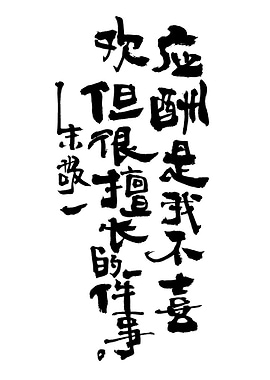 应酬是我不喜
欢但很擅长的一件事。
—朱敬一